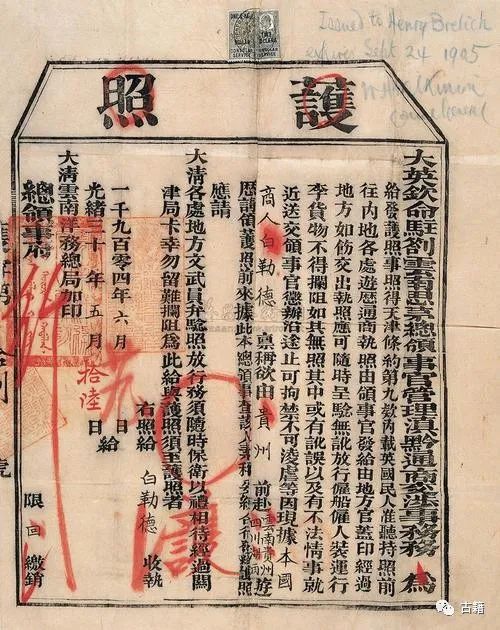 護照
Issued to Henry Brelich
expires Sept 24 1905
大英欽命駐劄雲南總領事官管理滇黔通商交涉事務 為
給發護照事照得天津條約第九款內載英國民人准聽持照前
往內地各處遊歷通商執照由領事官發給由地方官蓋印經過
地方如飭交出執照應可隨時呈驗無訛放行僱船僱人裝運行
李貨物不得攔阻如其無照其中或有訛誤以及有不法情事就
近送交領事官懲辦沿途止可拘禁不可凌虐等因現據本國
商人白勒德 稟稱欲由貴州 前赴雲南貴州四川湖南遊
歷請領護照前來據此本總領事
應請
大清各處地方文武員弁驗照放行務須隨時保衛以禮相待經過關
津局卡幸勿留難攔阻為此給與護照須至護照者
右照給 白勒德 收執
一千九百零四年六月 日給
光緒三十年五月拾陸日
大清雲南洋務總局加印
總領事府
限 回繳銷
古籍